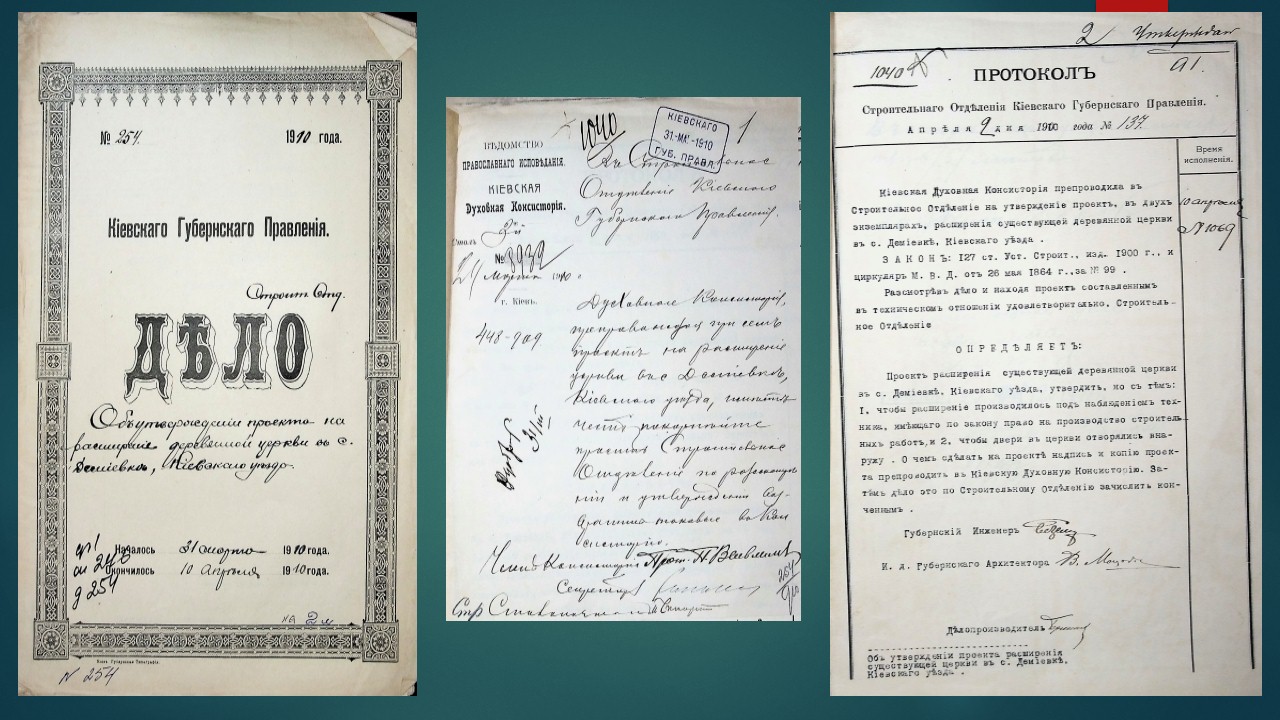 № 254. 1910 года.
Кіевскаго Губернскаго Правленія.
Строит. Отд.
ДѢЛО
Объ утвержденіи проекта на
расширеніе деревянной церкви въ с.
Деміевкѣ, Кіевскаго уѣзда.
Началось 31 марта 1910 года.
Окончилось 10 Апрѣля 1910 года.
на 2 л.
Кіев. Губернская Типографія.
N 254
1040
1
КІЕВСКАГО
31-МАР-1910
ГУБ. ПРАВЛ.
ВѢДОМСТВО
ПРАВОСЛАВНАГО ИСПОВѢДАНІЯ.
КІЕВСКАЯ
Духовная Консисторія.
Столъ 2й
№
Марта 1910 г.
г. Кіевъ.
448-909
Въ Строительное
Отдѣленіе Кіевскаго
Губернскаго Правленія.
Духовная Консисторія,
препровождая при семъ
проектъ на расширеніе
церкви въ с. Деміевкѣ,
Кіевскаго уѣзда, имѣетъ
честь покорнѣйше
просить Строительное
Отдѣленіе по разсмотрѣ-
ніи и утвержденіи воз-
вратить таковые въ Кон-
систорію.
Членъ Консисторіи Прот.
Секретарь
2 Утверждаю
1040
ПРОТОКОЛЪ
Строительнаго Отдѣленія Кіевскаго Губернскаго Правленія.
Апрѣля 9 дня 1910 года № 137.
Время
исполненія.
10 апрѣля
N 1069
Кіевская Духовная Консисторія препроводила въ
Строительное Отдѣленіе на утвержденіе проектъ, въ двухъ
экземплярахъ, расширенія существующей деревянной церкви
въ с. Деміевкѣ, Кіевскаго уѣзда .
ЗАКОНЪ: 127 ст. Уст. Строит., изд. 1900 г., и
циркуляръ М. В. Д. отъ 26 мая 1864 г., за № 99 .
Разсмотрѣвъ дѣло и находя проектъ составленнымъ
въ техническомъ отношеніи удовлетворительно, Строитель-
ное Отдѣленіе
ОПРЕДѢЛЯЕТЪ:
Проектъ расширенія существующей деревянной церкви
въ с. Деміевкѣ, Кіевскаго уѣзда, утвердить, но съ тѣмъ:
I. чтобы расширеніе производилось подъ наблюденіемъ тех-
ника, имѣющаго по закону право на производство строитель-
ныхъ работъ, и 2. чтобы двери въ церкви отворялись вна-
ружу . О чемъ сдѣлать на проектѣ надпись и копію проек-
та препроводить въ Кіевскую Духовную Консисторію. За-
тѣмъ дѣло это по Строительному Отдѣленію зачислить кон-
ченнымъ .
Губернскій Инженеръ
И. д. Губернскаго Архитектора
Дѣлопроизводитель
Объ утвержденіи проекта расширенія
существующей церкви въ с. Деміевкѣ,
Кіевскаго уѣзда .